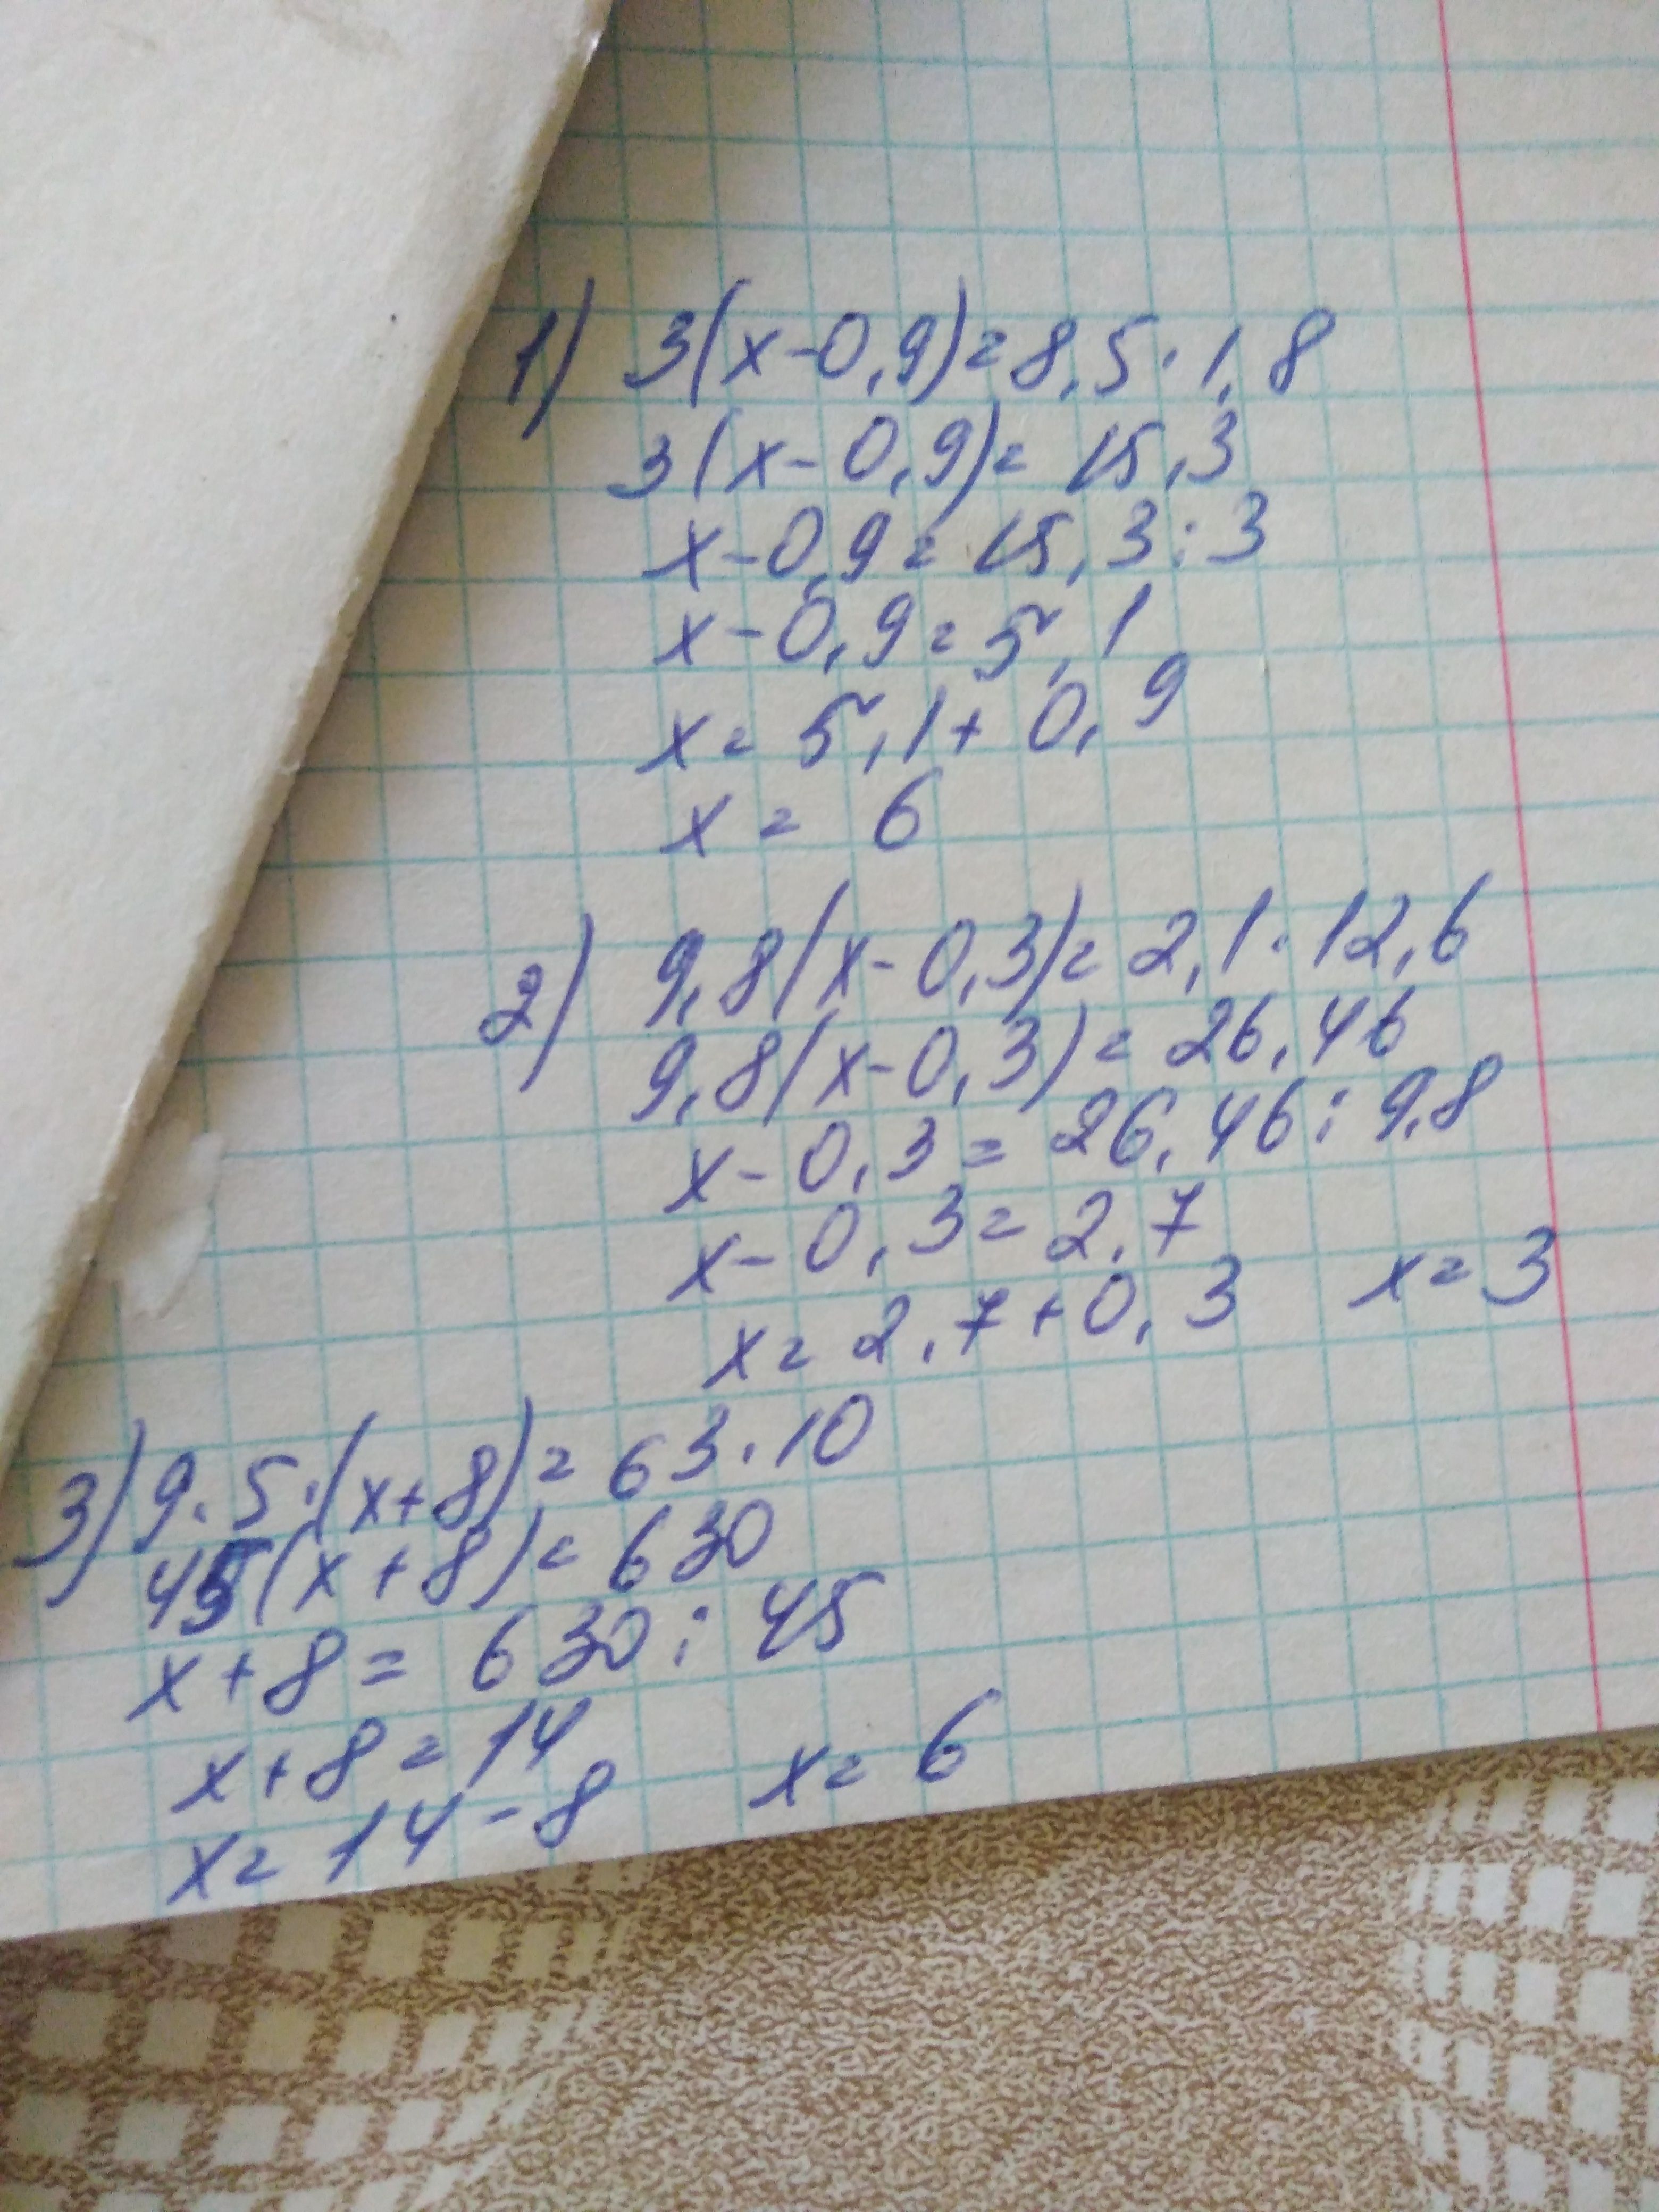 1) 3(x-0,9)=8,5·1,8
3(x-0,9)=15,3
x-0,9=15,3:3
x-0,9=5,1
x=5,1+0,9
x=6
2) 9,8(x-0,3)=2,1·12,6
9,8(x-0,3)=26,46
x-0,3=26,46:9,8
x-0,3=2,7
x=2,7+0,3 x=3
3) 9·5·(x+8)=63·10
45(x+8)=630
x+8=630:45
x+8=14
x=14-8 x=6